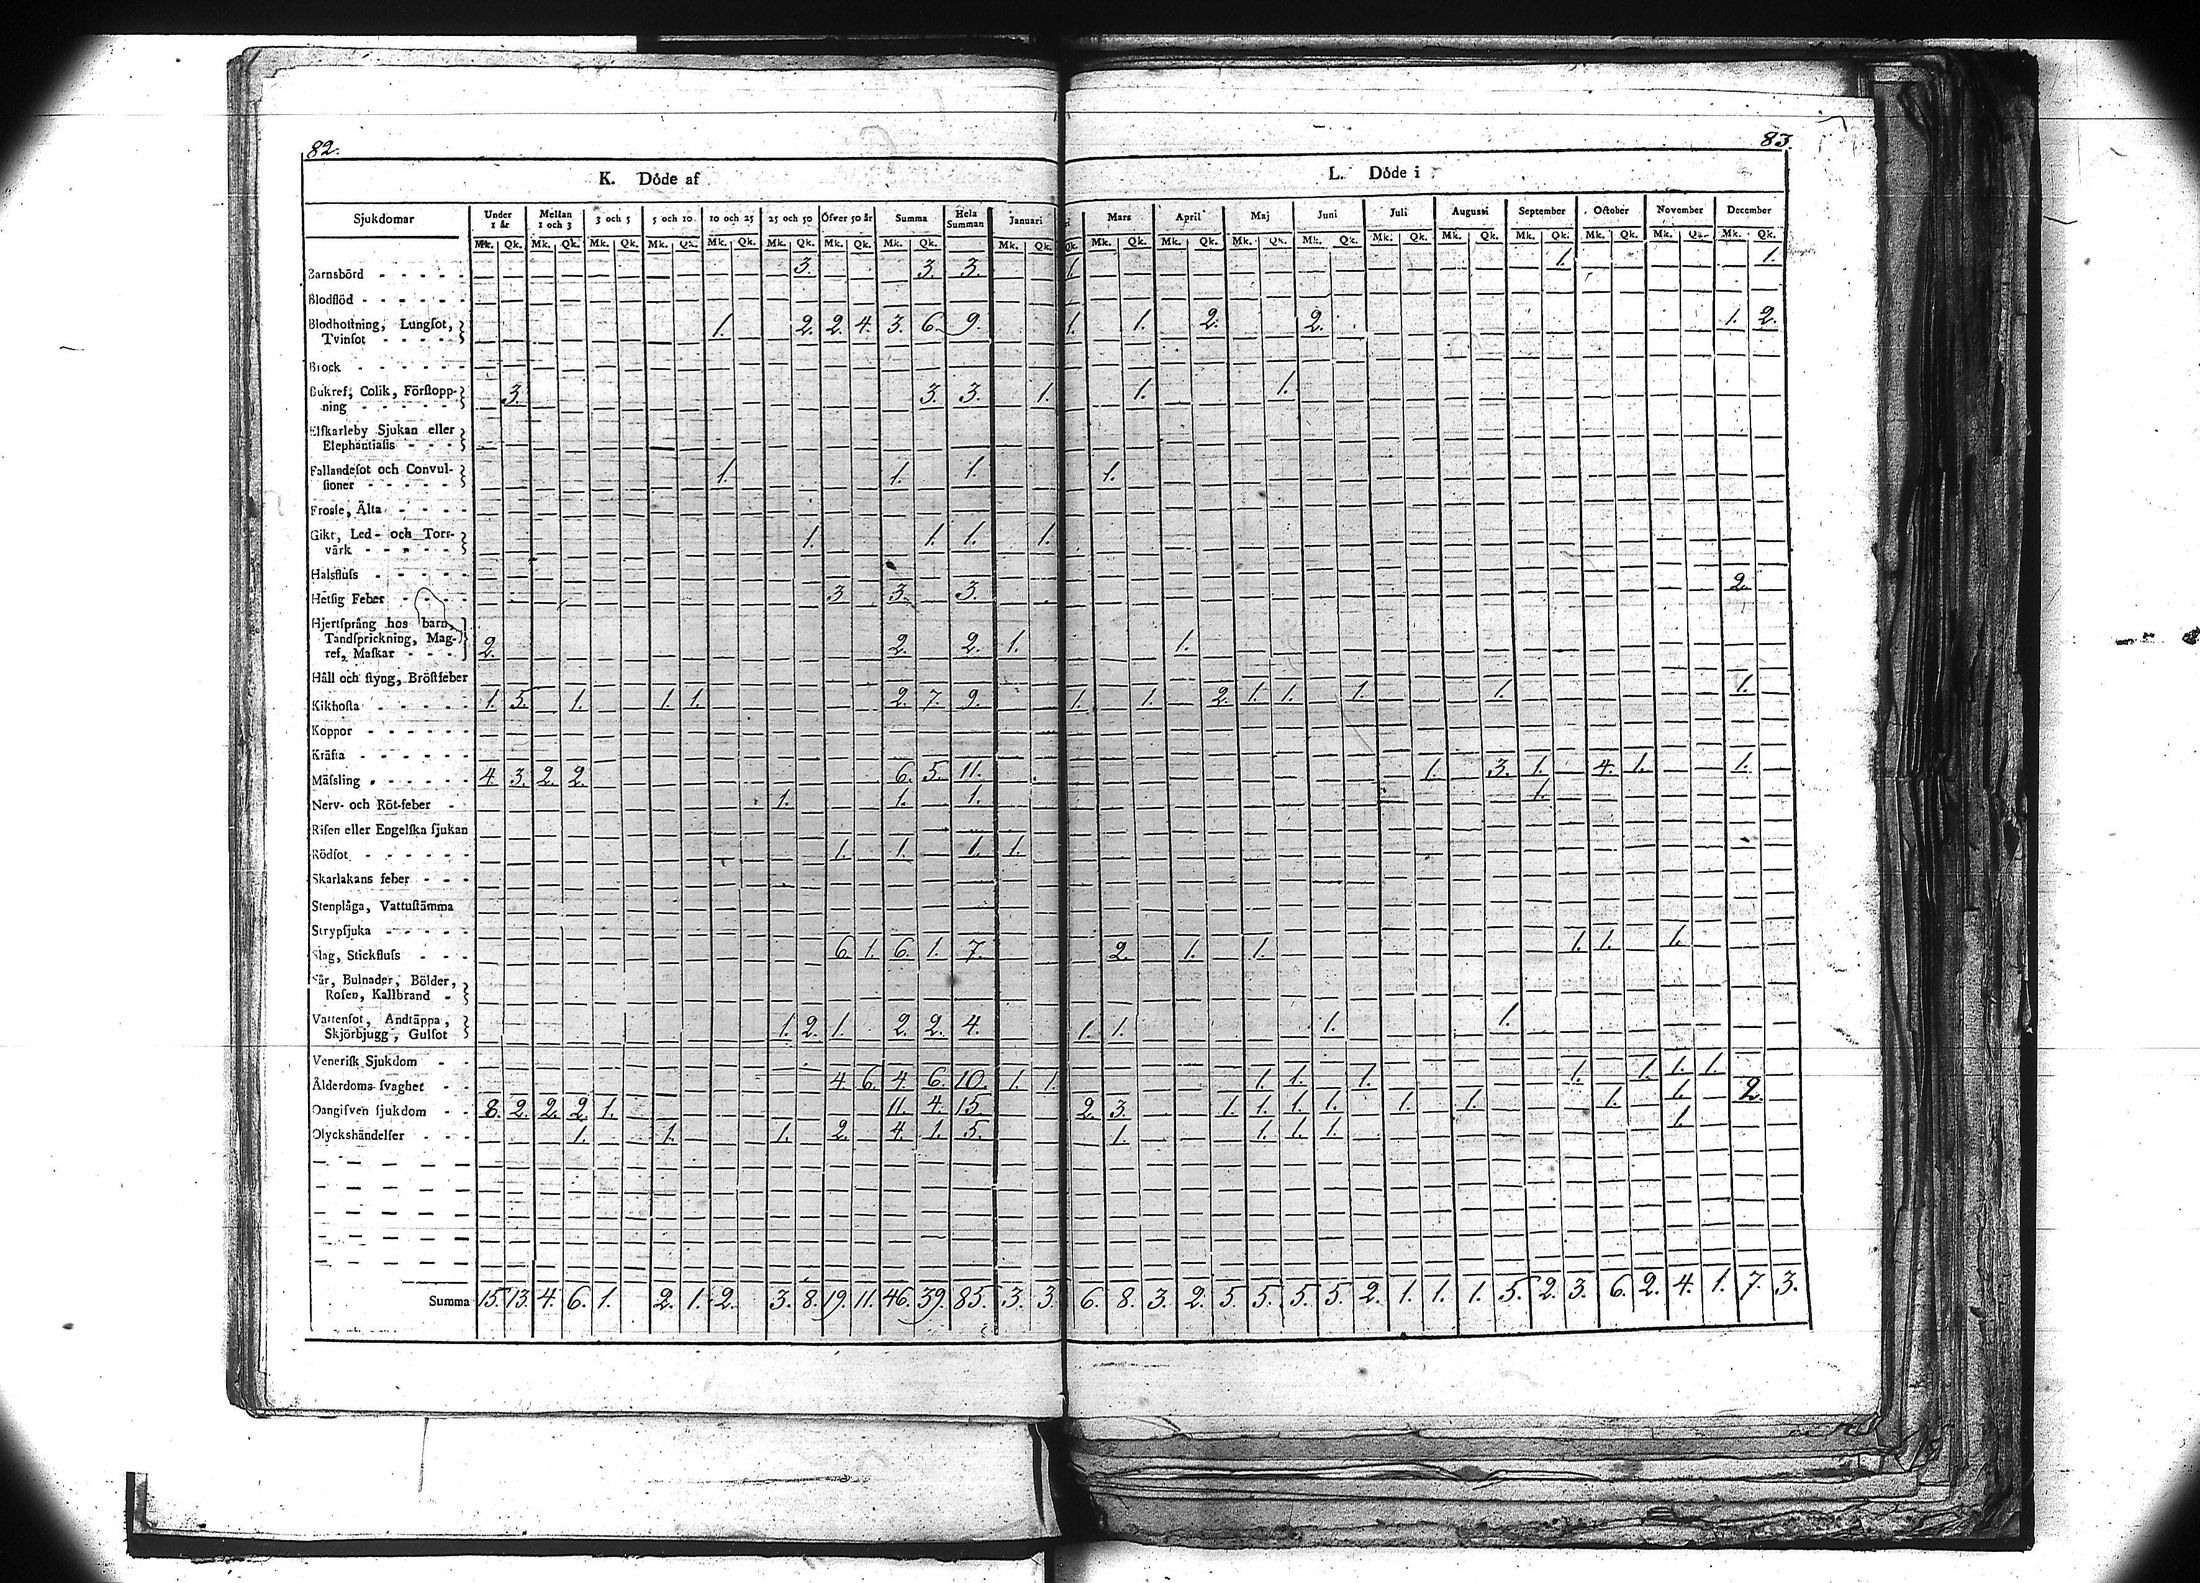 82.
83.
K. Döde af
L. Döde i
Sjukdomar Under 1 år Mellan 1 och 3 3 och 5 5 och 10 10 och 25 25 och 50 Öfver 50 år Summa Hela Summan Januari ri Mars April Maj Juni Juli Augusti September October November December
Mk. Qk. Mk. Qk. Mk. Qk. Mk. Qk. Mk. Qk. Mk. Qk. Mk. Qk. Mk. Qk. Mk. Qk. Qk. Mk. Qk. Mk. Qk. Mk. Qk. Mk. Qk. Mk. Qk. Mk. Qk. Mk. Qk. Mk. Qk. Mk. Qk. Mk. Qk.
Barnsbörd - - - - - 3. 3. 3. 1. 1. 1.
Blodflöd - - - - - -
Blodhostning, Lungsot,
Tvinsot - - - - - 1. 2. 2. 4. 3. 6. 9. 1. 1. 2. 2. 1. 2.
Brock - - - - - -
Bukref, Colik, Förstopp-
ning - - - - - 3. 3. 3. 1. 1. 1.
Elfkarleby Sjukan eller
Elephantiasis - - -
Fallandesot och Convul-
sioner - - - - - 1. 1. 1. 1.
Frosse, Älta - - - -
Gikt, Led- och Torr-
värk - - - - - 1. 1. 1. 1.
Halsfluss - - - - -
Hetsig Feber - - - - 3 3. 3. 2.
Hjertsprång hos barn,
Tandsprickning, Mag-
ref, Maskar - - - 2. 2. 2. 1. 1.
Håll och styng, Bröstfeber
Kikhosta - - - - - 1. 5. 1. 1. 1. 2. 7. 9. 1. 1. 2. 1. 1. 1. 1. 1.
Koppor - - - - - -
Kräfta - - - - - -
Mässling - - - - - - 4. 3. 2. 2. 6. 5. 11. 1. 3. 1. 4. 1. 1.
Nerv- och Röt-feber - 1. 1. 1. 1.
Risen eller Engelska sjukan
Rödsot - - - - - - 1. 1. 1. 1.
Skarlakans feber - - -
Stenplåga, Vattustämma
Strypsjuka - - - - -
Slag, Stickfluss - - - 6. 1. 6. 1. 7. 2. 1. 1. 1. 1. 1.
Sår, Bulnader, Bölder,
Rosen, Kallbrand -
Vattensot, Andtäppa,
Skjörbjugg, Gulsot 1. 2. 1. 2. 2. 4. 1. 1. 1. 1.
Venerisk Sjukdom - -
Ålderdoms svaghet - - 4. 6. 4. 6. 10. 1. 1. 1. 1. 1. 1. 1. 1. 1.
Oangifven sjukdom - - 8. 2. 2. 2. 1. 11. 4. 15. 2. 3. 1. 1. 1. 1. 1. 1. 1. 1. 2.
Olyckshändelser - - - 1. 1. 1. 2. 4. 1. 5. 1. 1. 1. 1. 1.
Summa 15. 13. 4. 6. 1. 2. 1. 2. 3. 8. 19. 11. 46. 39. 85. 3. 3. 6. 8. 3. 2. 5. 5. 5. 5. 2. 1. 1. 1. 5. 2. 3. 6. 2. 4. 1. 7. 3.